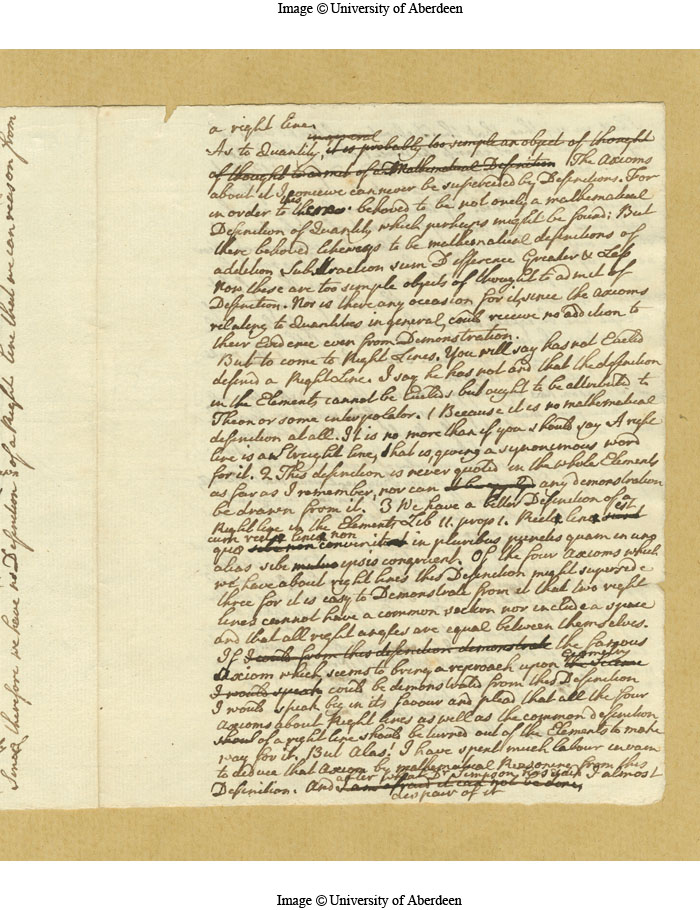 Image © University of Aberdeen
Since therefore we have no Definition of a Right line that we can reason from
a right line.
As to Quantity, in general it is probably too simple an object of thought
of thought to admit of a Mathematical Definition The Axioms
about it I conceive can never be superceded by Definitions. For
in order to this behoved to be not only a mathematical
Definition of Quantity which perhaps might be found; But
there behoved likeways to be mathematical definitions of
addition Substraction sum Difference Greater & Less
Now these are too simple objects of thought to admit of
Definition. Nor is there any occasion for it, since the axioms
relating to Quantities in general, could receive no addition to
their Evidence even from Demonstration.
But to come to Right Lines. You will say has not Euclid
defined a Right Line. I say he has not and that the definition
in the Elements cannot be Euclids but ought to be attributed to
Theon or some interpolator. 1 Because it is no mathematical
definition at all. It is no more than if you should say A right
line is a streight line, that is, giving a synonimous word
for it. 2 This definition is never quoted in the whole Elements
as far as I remember, nor can any demonstration
be drawn from it. 3 We have a better Definition of a
Right line in the Elements Lib 11. prop 1. Recta linea est
quæ cum recta linea non convenit in pluribus punctis quam in uno
alias sibi ipsis congruent. Of the four Axioms which
we have about right lines this Definition might supersede
three for it is easy to Demonstrate from it that two right
lines cannot have a common section nor include a space
and that all right angles are equal between themselves.
If I could from this definition demonstrate the famous
Axiom which seems to bring a reproach upon Geometry the science
I would speak could be demonstrated from this Definition
I would speak big in its favour and plead that all the four
Axioms about Right lines as well as the common definition
of a right line should be turned out of the Elements to make
way for it. But Alas! I have spent much labour in vain
to deduce that Axiom by mathematical Reasoning from this
Definition. And after what Dr Simpson has I almost
I am afraid it can not be done,
despair of it
Image © University of Aberdeen